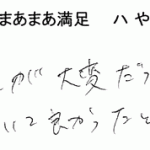 まあまあ満足　ハ　や
が 大変だっ
いて良かったと